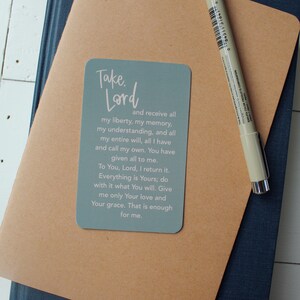 Take,
Lord
and receive all
my liberty, my memory,
my understanding, and all
my entire will, all I have
and call my own. You have
given all to me.
To You, Lord, I return it.
Everything is Yours; do
with it what You will. Give
me only Your love and
Your grace. That is enough
for me.